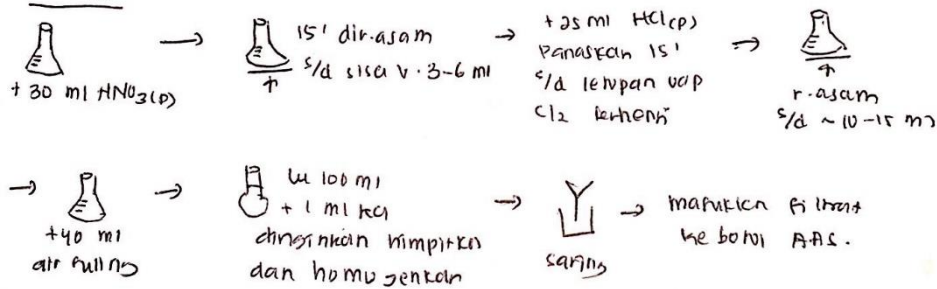 + 30 ml HNO3(p)
15' dir.asam
s/d sisa v. 3-6 ml
+25 ml HCl(p)
Panaskan 15'
s/d letupan uap
Cl2 berhenti
r.asam
s/d ~ 10-15 ml
+40 ml
air suling
lu 100 ml
+ 1 ml KCl
dinginkan himpitkn
dan homogenkan
saring
masukkan filtrat
ke botol AAS.